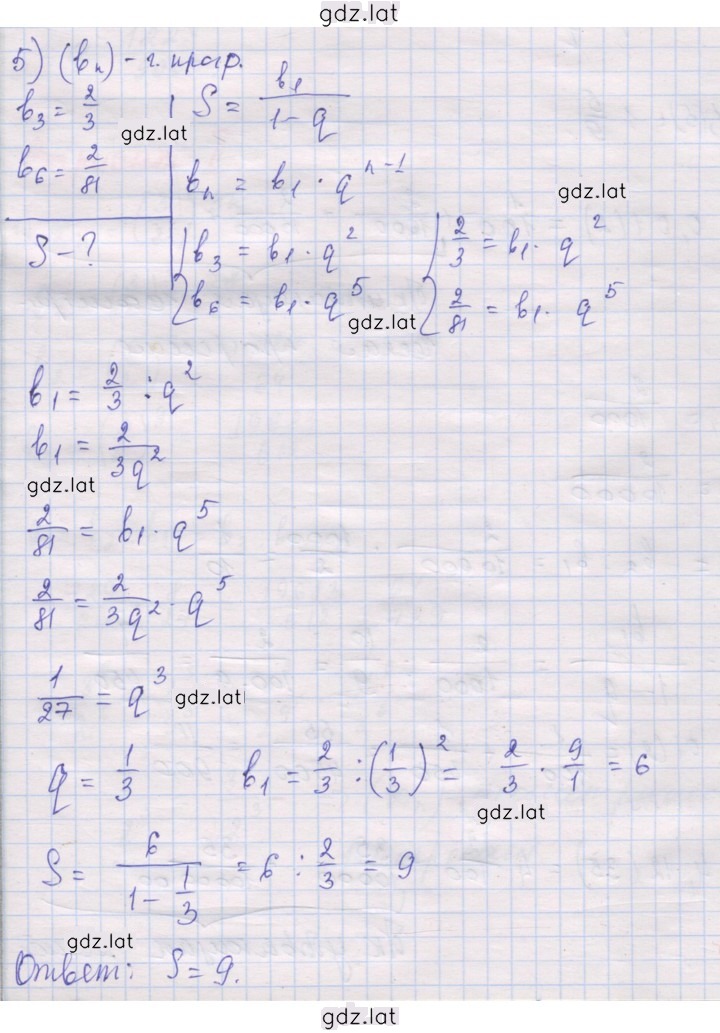 gdz.lat
5) (bₙ) - г. прогр.
b₃ = 2/3
S = b₁/(1 - q)
gdz.lat
b₆ = 2/81
bₙ = b₁ · qⁿ⁻¹
gdz.lat
S - ?
{ b₃ = b₁ · q²
{ b₆ = b₁ · q⁵
{ 2/3 = b₁ · q²
{ 2/81 = b₁ · q⁵
gdz.lat
b₁ = 2/3 : q²
b₁ = 2/(3q²)
gdz.lat
2/81 = b₁ · q⁵
2/81 = 2/(3q²) · q⁵
1/27 = q³
gdz.lat
q = 1/3 b₁ = 2/3 : (1/3)² = 2/3 · 9/1 = 6
gdz.lat
S = 6/(1 - 1/3) = 6 : 2/3 = 9
gdz.lat
Ответ: S = 9.
gdz.lat